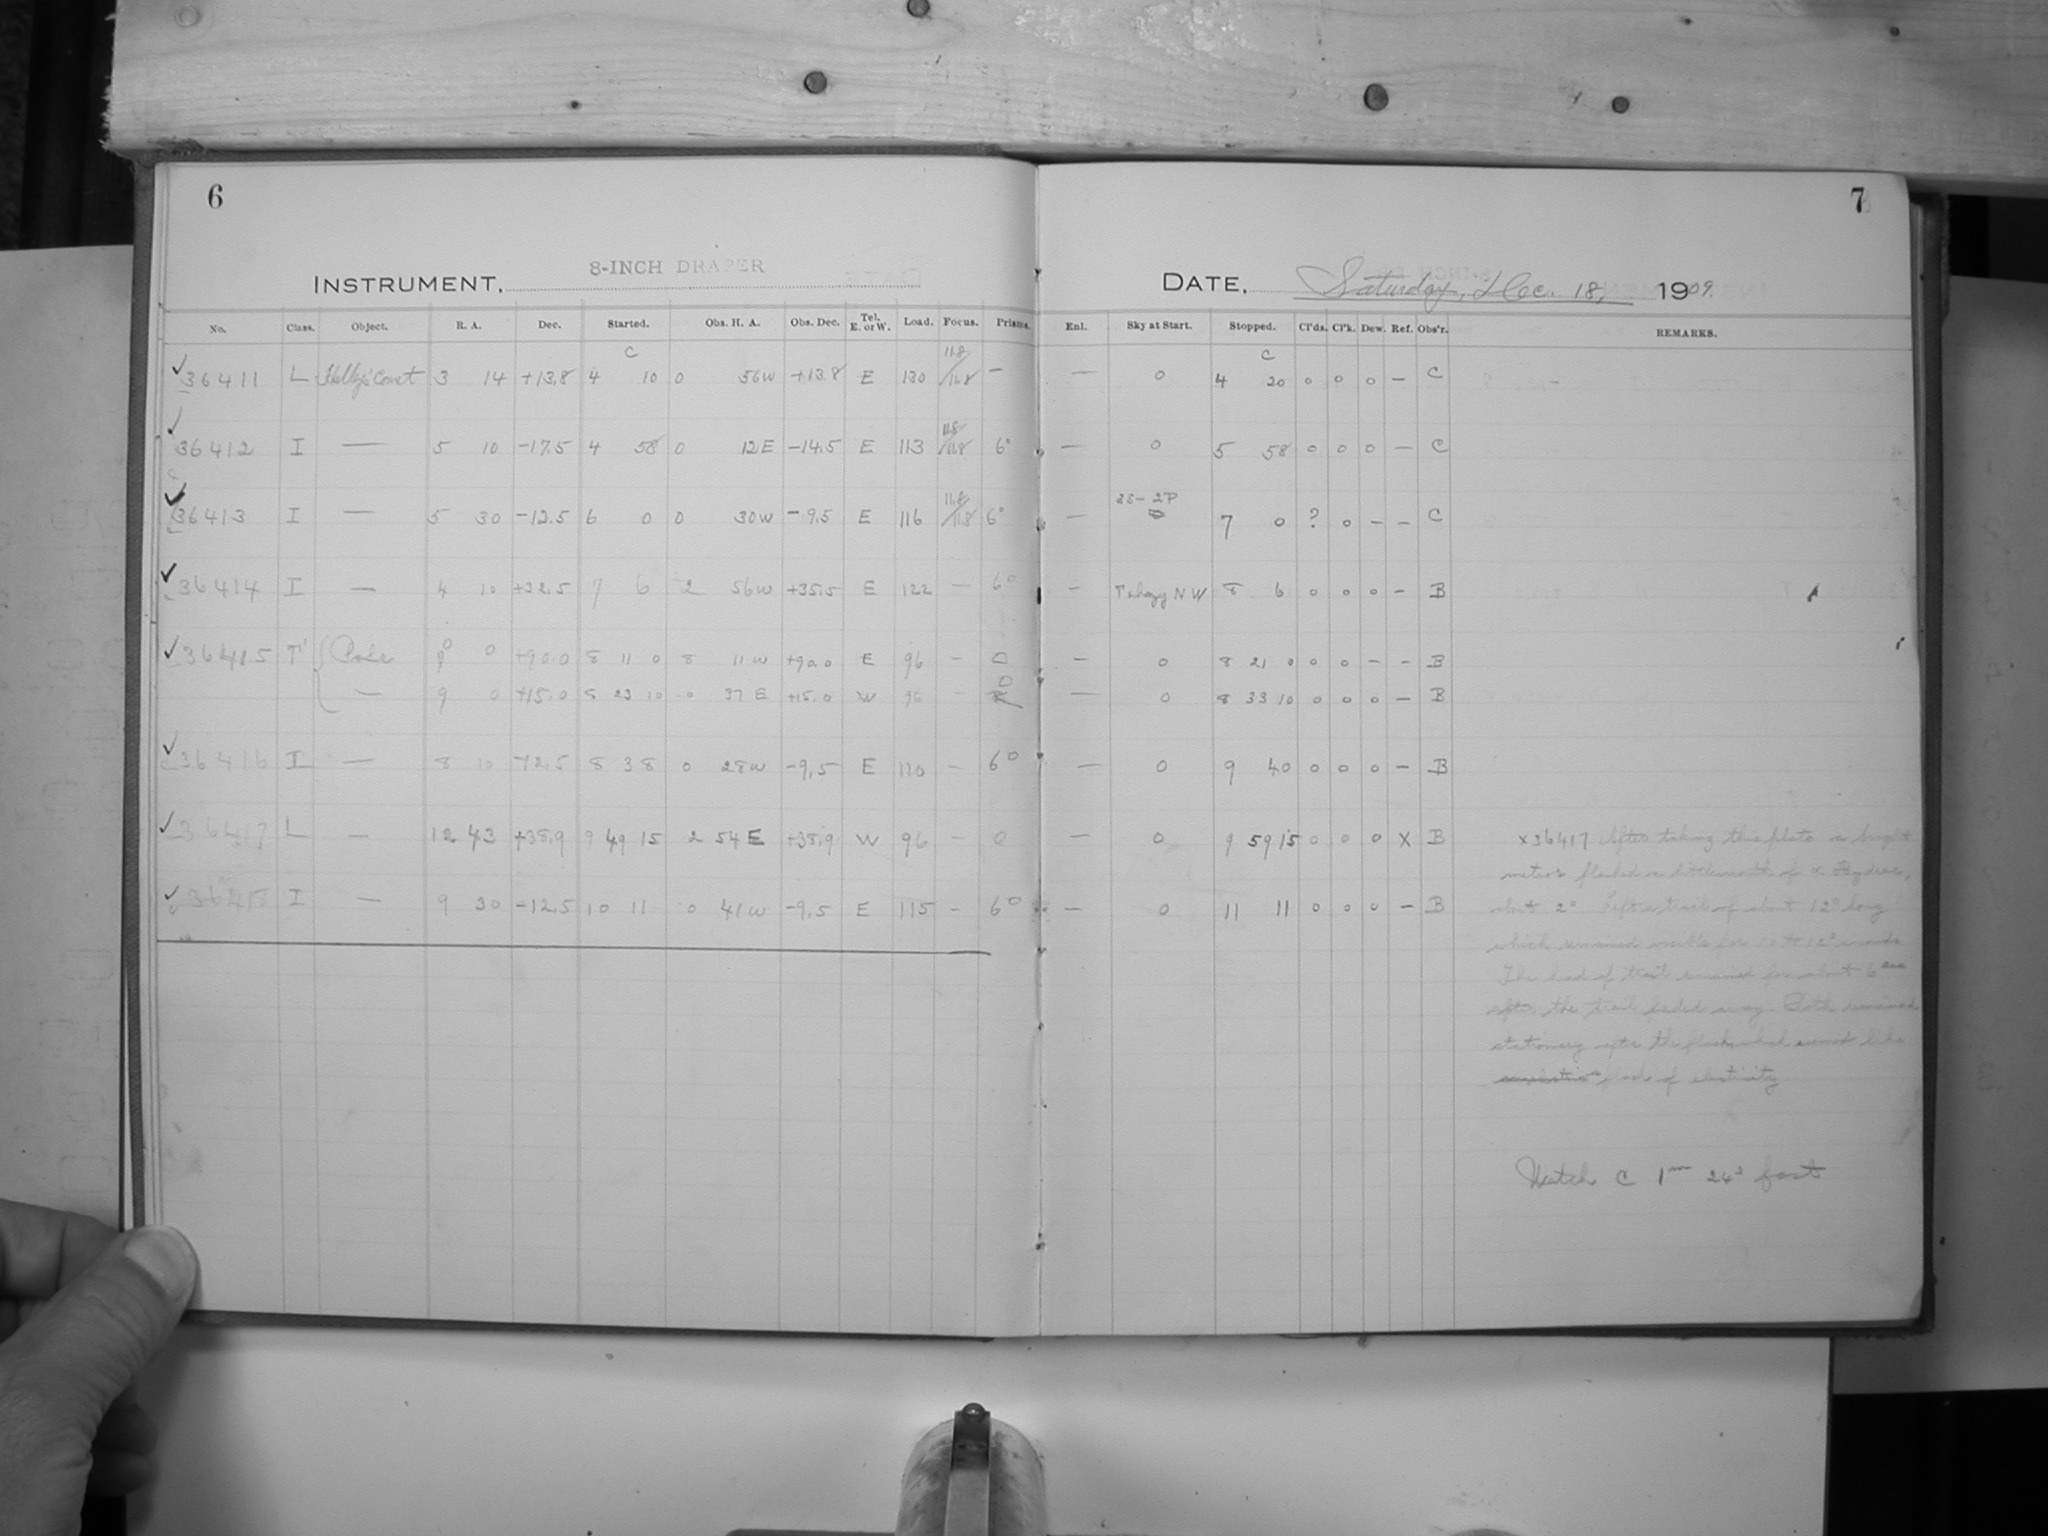 6
7
INSTRUMENT. 8-INCH DRAPER
DATE. Saturday, Dec. 18, 1909.
No. Class. Object. R. A. Dec. Started. Obs. H. A. Obs. Dec. Tel. E. or W. Load. Focus. Prisms. Enl. Sky at Start. Stopped. Cl'ds. Cl'k. Dew. Ref. Obs'r. REMARKS.
C 11.8 C
36411 L Halley's Comet 3 14 +13.8 4 10 0 56W +13.8 E 130 11.8 — — 0 4 20 0 0 0 — C
11.8
36412 I — 5 10 -17.5 4 58 0 12E -14.5 E 113 11.8 6° — 0 5 58 0 0 0 — C
11.8
36413 I — 5 30 -12.5 6 0 0 30W -9.5 E 116 11.8 6° — 7 0 ? 0 — — C
36414 I — 4 10 +32.5 7 6 2 56W +35.5 E 122 — 6° — hazy NW 8 6 0 0 0 — B
36415 T' Pole 0 +90.0 8 11 0 8 11W +90.0 E 96 — 0 — 0 8 21 0 0 0 — — B
— 9 0 +15.0 8 23 10 0 37 E +15.0 W 96 — 0 — 0 8 33 10 0 0 0 — B
36416 I — 8 10 -12.5 8 38 0 28W -9.5 E 110 — 6° — 0 9 40 0 0 0 — B
36417 L — 12 43 +38.9 9 49 15 2 54 E +38.9 W 96 — 0 — 0 9 59 15 0 0 0 X B x36417 After taking this plate a bright
meteor flashed a little north of α Hydrae,
36418 I — 9 30 -12.5 10 11 0 41W -9.5 E 115 — 6° — 0 11 11 0 0 0 — B about 2° Left a trail of about 12° long
which remained visible for 10 to 12 seconds
The head of trail remained for about 6 sec
after the trail faded away. Both remained
stationary after the flash which like
flash of electricity
Watch C 1m 24s fast